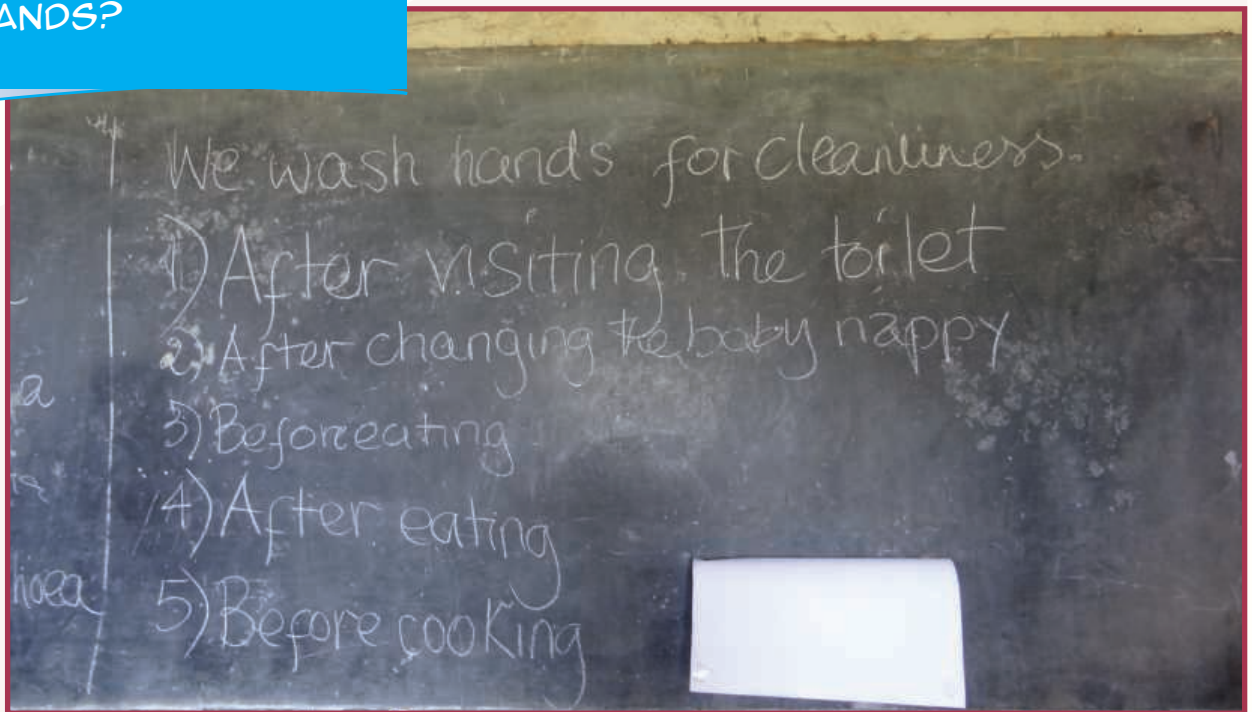 ANDS?
We wash hands for cleanliness.
1) After visiting the toilet
2) After changing the baby nappy
3) Before eating
4) After eating
5) Before cooking
a
hoea